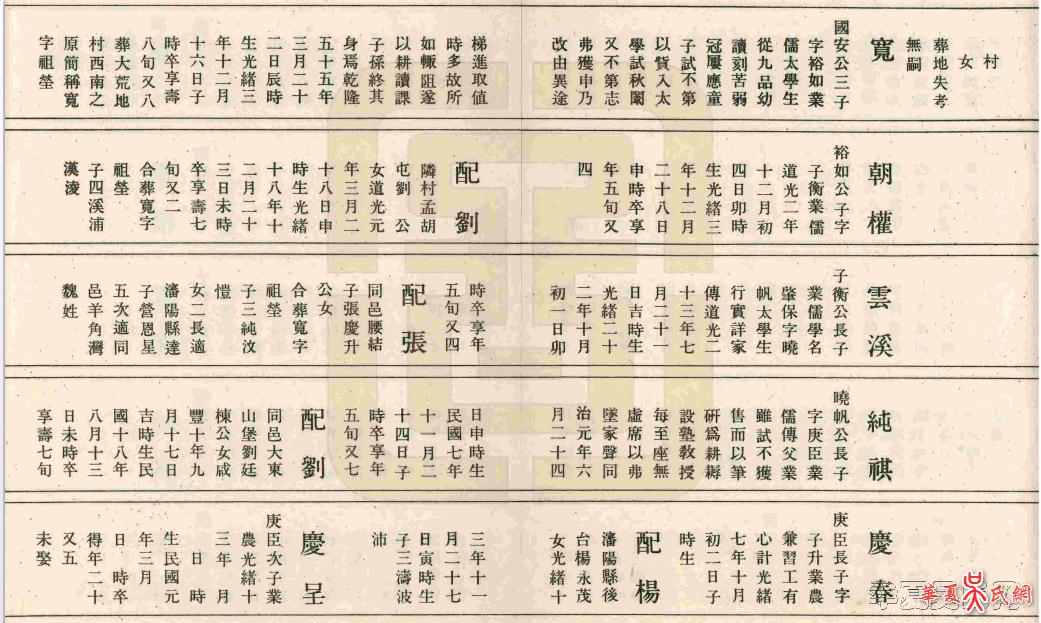 村
女
葬地失考
無嗣
寬
國安公三子
字裕如業
儒太學生
從九品幼
讀刻苦弱
冠屢應童
子試不第
以貲入太
學試秋闈
又不第志
弗獲申乃
改由異途
梯進取值
時多故所
如輒阻遂
以耕讀課
子孫終其
身焉乾隆
五十五年
三月二十
二日辰時
生光緒三
年十二月
十六日子
時卒享壽
八旬又八
葬大荒地
村西南之
原簡稱寬
字祖塋
朝權
裕如公子字
子衡業儒
道光二年
十二月初
四日卯時
生光緒三
年十二月
二十八日
申時卒享
年五旬又
四
配劉
隣村孟胡
屯劉 公
女道光元
年三月二
十八日申
時生光緒
十八年十
二月二十
三日未時
卒享壽七
旬又二
合葬寬字
祖塋
子四溪浦
漢淩
雲溪
子衡公長子
業儒學名
肇保字曉
帆太學生
行實詳家
傳道光二
十三年七
月二十一
日吉時生
光緒二十
二年十月
初一日卯
時卒享年
五旬又四
配張
同邑腰結
子張慶升
公女
合葬寬字
祖塋
子三純汶
愷
女二長適
瀋陽縣達
子營恩星
五次適同
邑羊角灣
魏姓
純祺
曉帆公長子
字庚臣業
儒傳父業
雖試不獲
售而以筆
硏爲耕耨
設塾教授
每至座無
虛席以弗
墜家聲同
治元年六
月二十四
日申時生
民國七年
十一月二
十四日子
時卒享年
五旬又七
配劉
同邑大東
山堡劉廷
棟公女咸
豐十年九
月十七日
吉時生民
國十八年
八月十三
日未時卒
享壽七旬
慶春
庚臣長子字
子升業農
兼習工有
心計光緒
七年十月
初二日子
時生
配楊
瀋陽縣後
台楊永茂
女光緒十
三年十一
月二十七
日寅時生
子三濤波
沛
慶呈
庚臣次子業
農光緒十
三年 月
日 時
生民國元
年三月
日 時卒
得年二十
又五
未娶
華夏吳氏網